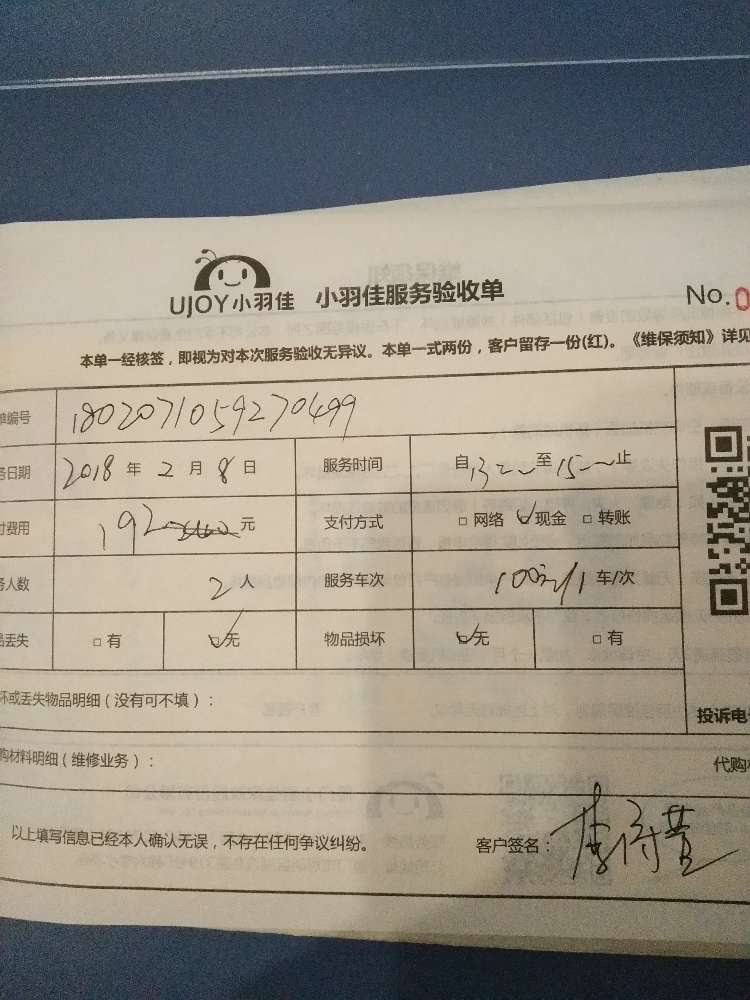 UJOY小羽佳 小羽佳服务验收单
No.0
本单一经核签，即视为对本次服务验收无异议。本单一式两份，客户留存一份(红)。《维保须知》详见
单编号 1802071059270499
务日期 2018 年 2 月 8 日 服务时间 自 13 至 15 止
付费用 192 元 支付方式 □网络 □现金 □转账
务人数 2 人 服务车次 100元/1 车/次
品丢失 □有 □无 物品损坏 □无 □有
坏或丢失物品明细（没有可不填）：
投诉电
购材料明细（维修业务）：
代购
以上填写信息已经本人确认无误，不存在任何争议纠纷。 客户签名：